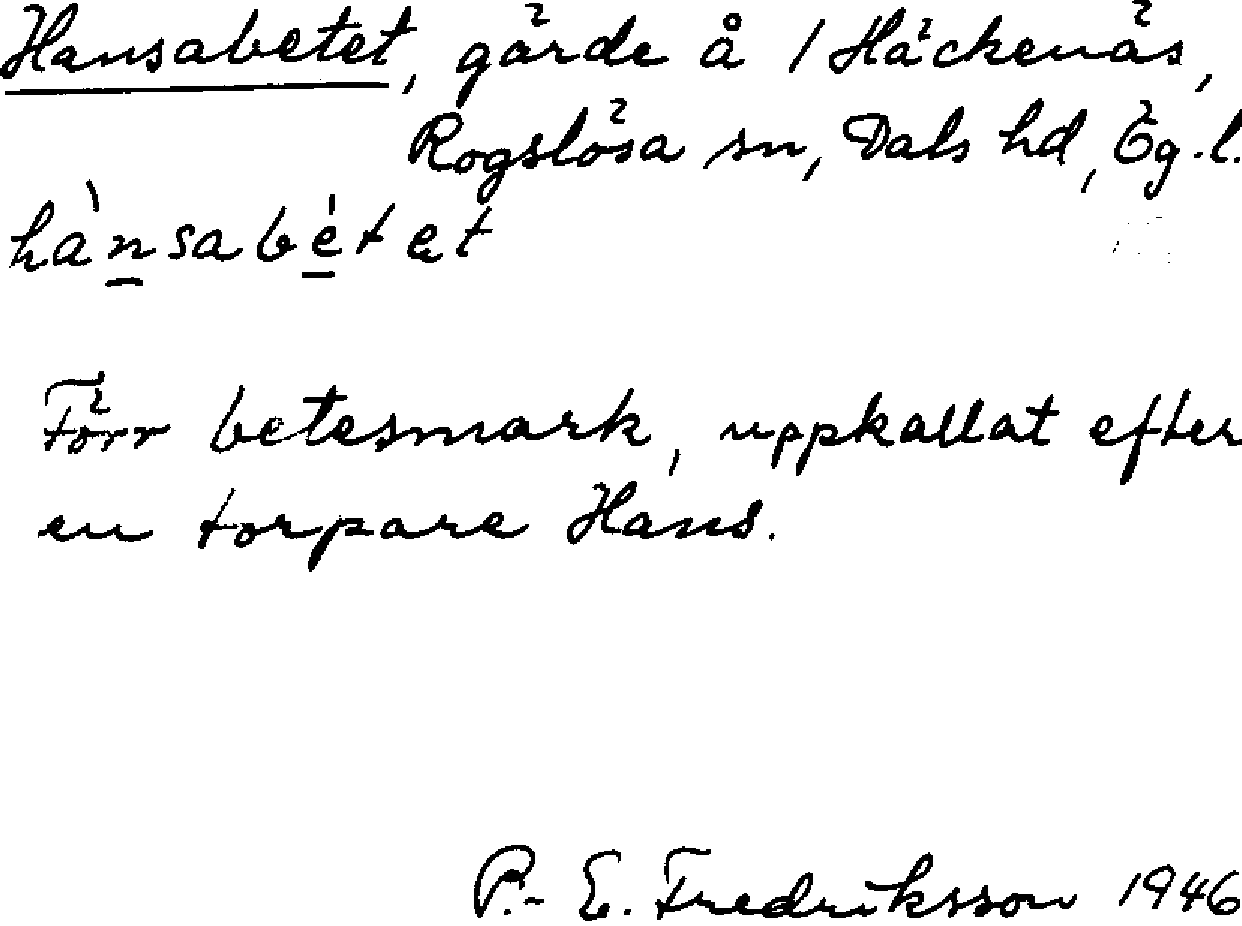 Hansabetet, gärde å 1 Häckenäs,
Rogslösa sn, Dals hd, Ög.l.
hànsabétet
Förr betesmark, uppkallat efter
en torpare Hans.
P.-E. Fredriksson 1946